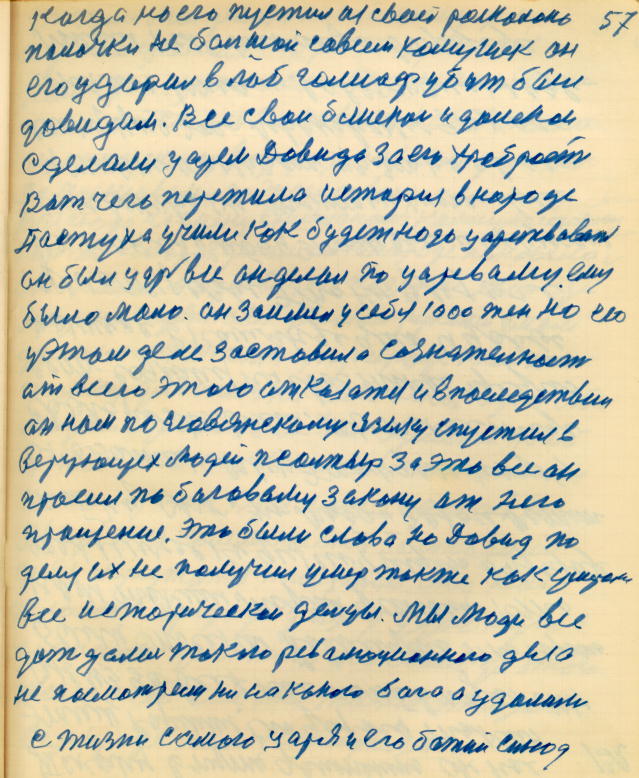 когда на его пустил из своей расколоно 57
палочки не болшой совсем камушек он
его ударил в лоб голиаф убит был
довидам. Все свои блиской и далекой
сделали царем Довида за его храброст
Вот чего пережила история в народе
Пастуха учили как будет надо царствоват
он был царь все он делал по царевому ему
было мало. он заимел у себя 1000 жен но его
у этом деле заставила сознателност
от всего этого отказатся и впоследствии
он нам по словянскому языку пустил в
верующих людей псолтыр за это все он
просил по боговому закону от него
прощение. Это были слова но Довид по
делу их не получил умер также как
все исторической делцы. Мы люди все
дождалис такого революционного дела
не посмотрели ни на какого бога а удалили
с жизни самого царя и его божий синод